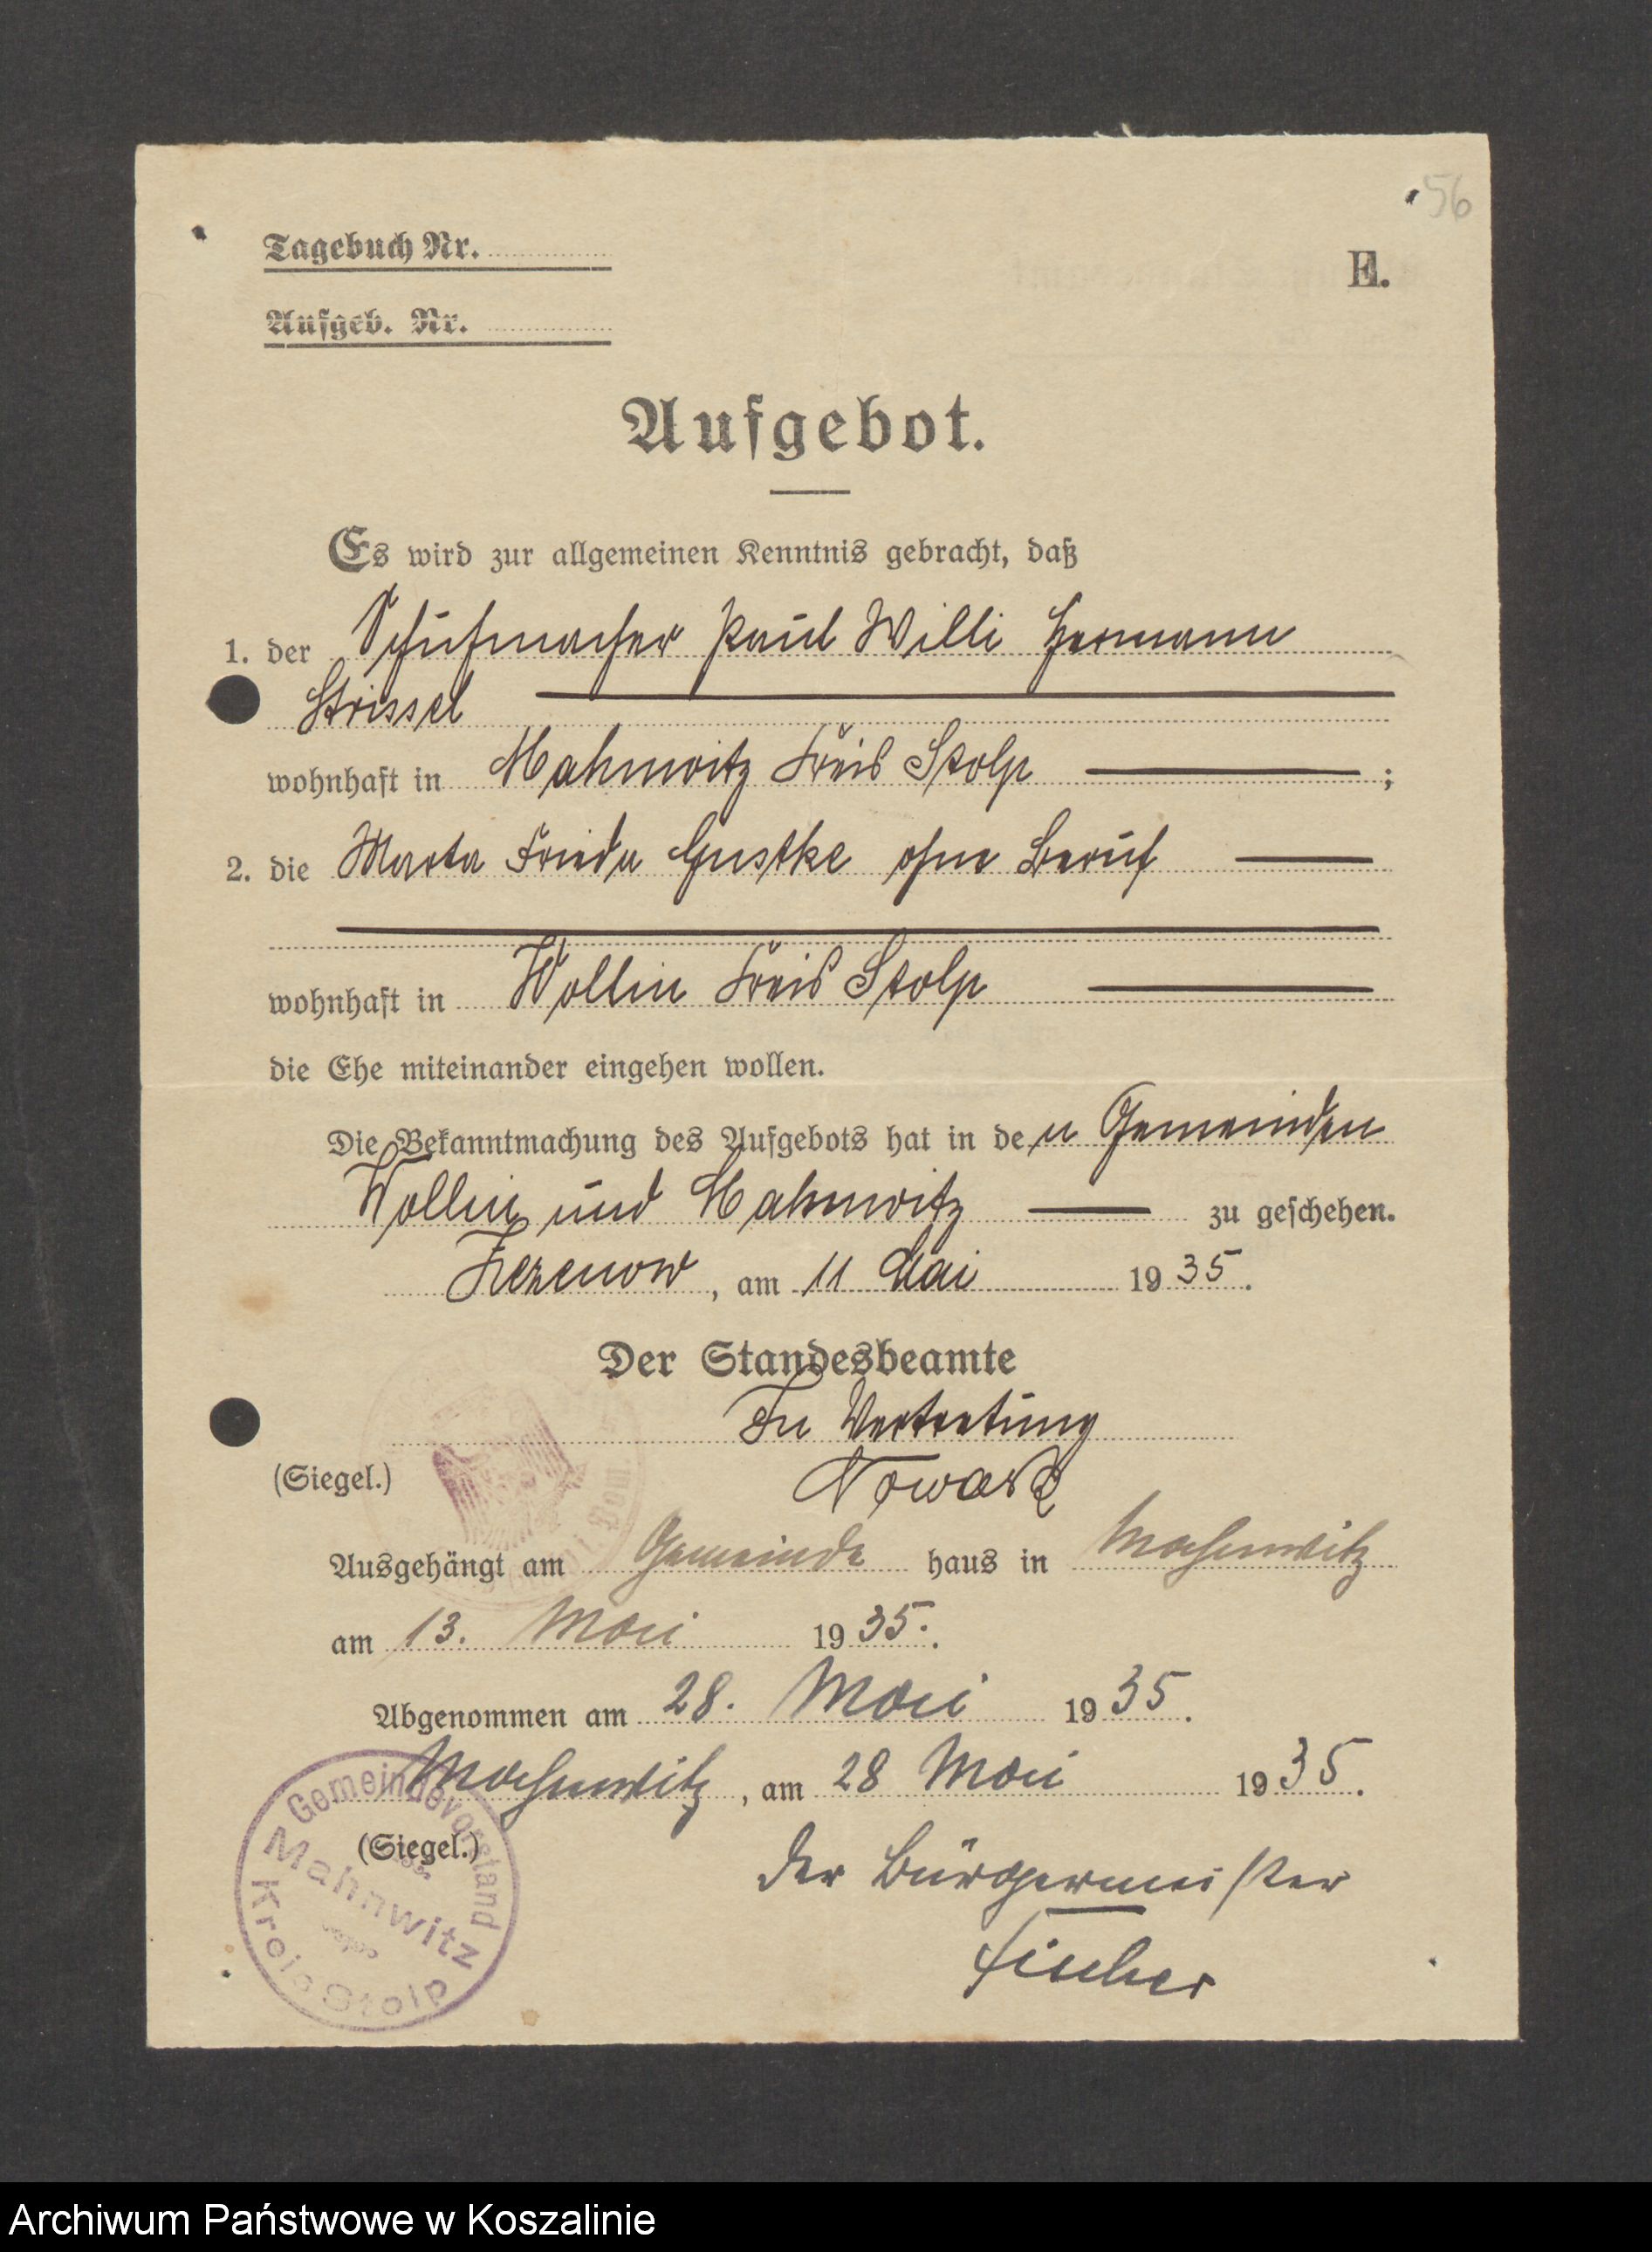 56
Tagebuch Nr.
E.
Aufgeb. Nr.
Aufgebot.
Es wird zur allgemeinen Kenntnis gebracht, daß
1. der Schuhmacher Paul Willi Hermann
Strissel
wohnhaft in Mahnwitz Kreis Stolp ;
2. die Marta Frieda Gustke ohne Beruf
wohnhaft in Wollin Kreis Stolp
die Ehe miteinander eingehen wollen.
Die Bekanntmachung des Aufgebots hat in den Gemeinden
Wollin und Mahnwitz zu geschehen.
Fezenow, am 11 Mai 1935.
Der Standesbeamte
In Vertretung
(Siegel.) Nowack
Ausgehängt am Gemeinde haus in Mahnwitz
am 13. Mai 1935.
Abgenommen am 28. Mai 1935.
Mahnwitz, am 28 Mai 1935.
(Siegel.)
Gemeindevorstand
Mahnwitz
Kreis Stolp
Der Bürgermeister
Fischer
Archiwum Państwowe w Koszalinie